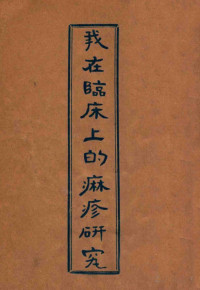 我在臨床上的痳疹研究